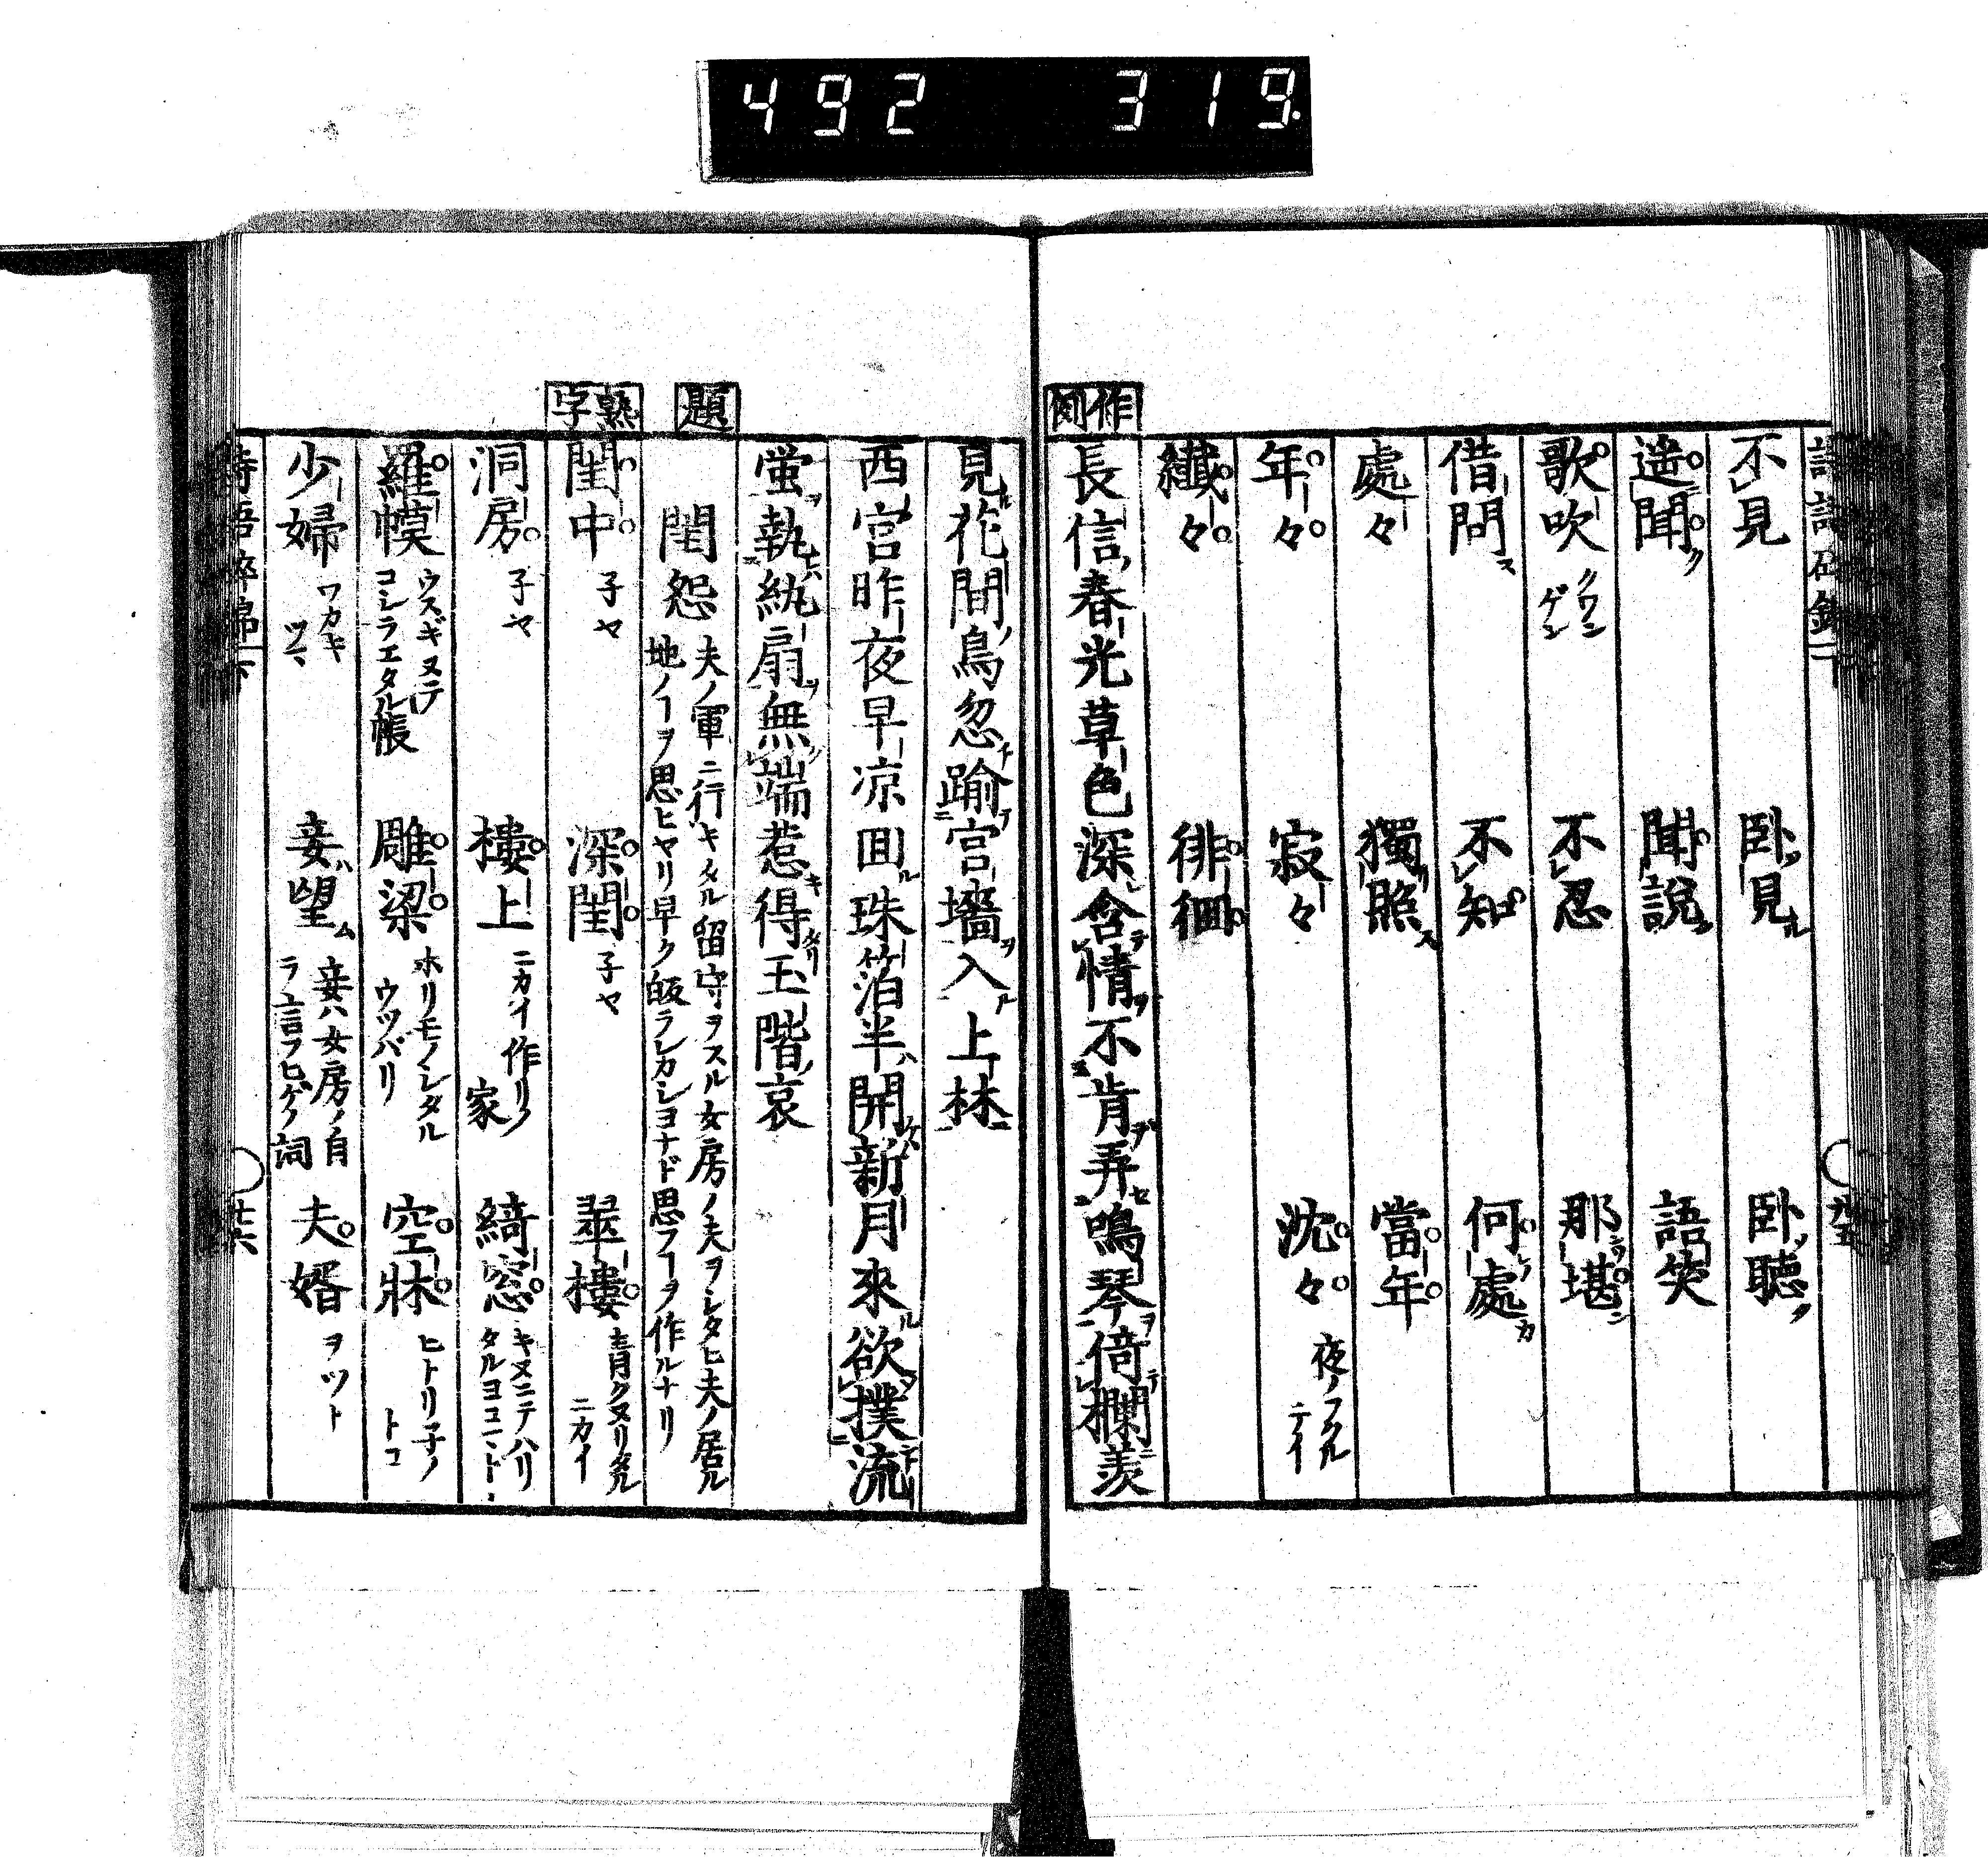 492 319
不見 臥見 臥聴
遥聞 聞説 語笑
歌吹 クワンゲン 不忍 那堪
借問 不知 何處
處々 獨照 當年
年々 寂々 沈々 夜ノフクルテイ
纎々 徘徊
作例
長信春光草色深含情不肯弄鳴琴倚欄羨
見花間鳥忽踰宮墻入上林
西宮昨夜早凉回珠箔半開新月來欲撲流
蛍執紈扇無端惹得玉階哀
題
閨怨 夫ノ軍ニ行キタル留守ヲスル女房ノ夫ヲシタヒ夫ノ居ル
地ノヿヲ思ヒヤリ早ク皈ラレカシヨナド思フヿヲ作ルナリ
熟字
閨中 子ヤ 深閨 子ヤ 翠樓 青クヌリタルニカイ
洞房 子ヤ 樓上 ニカイ作リノ家 綺窓 キヌニテハリタルヨコマト
羅幙 ウスギヌニテコシラエタル帳 雕梁 ホリモノシタルウツバリ 空牀 ヒトリ子ノトコ
少婦 ワカキツマ 妾望 妾ハ女房ノ自ラ言フヒゲノ詞 夫婿 ヲツト